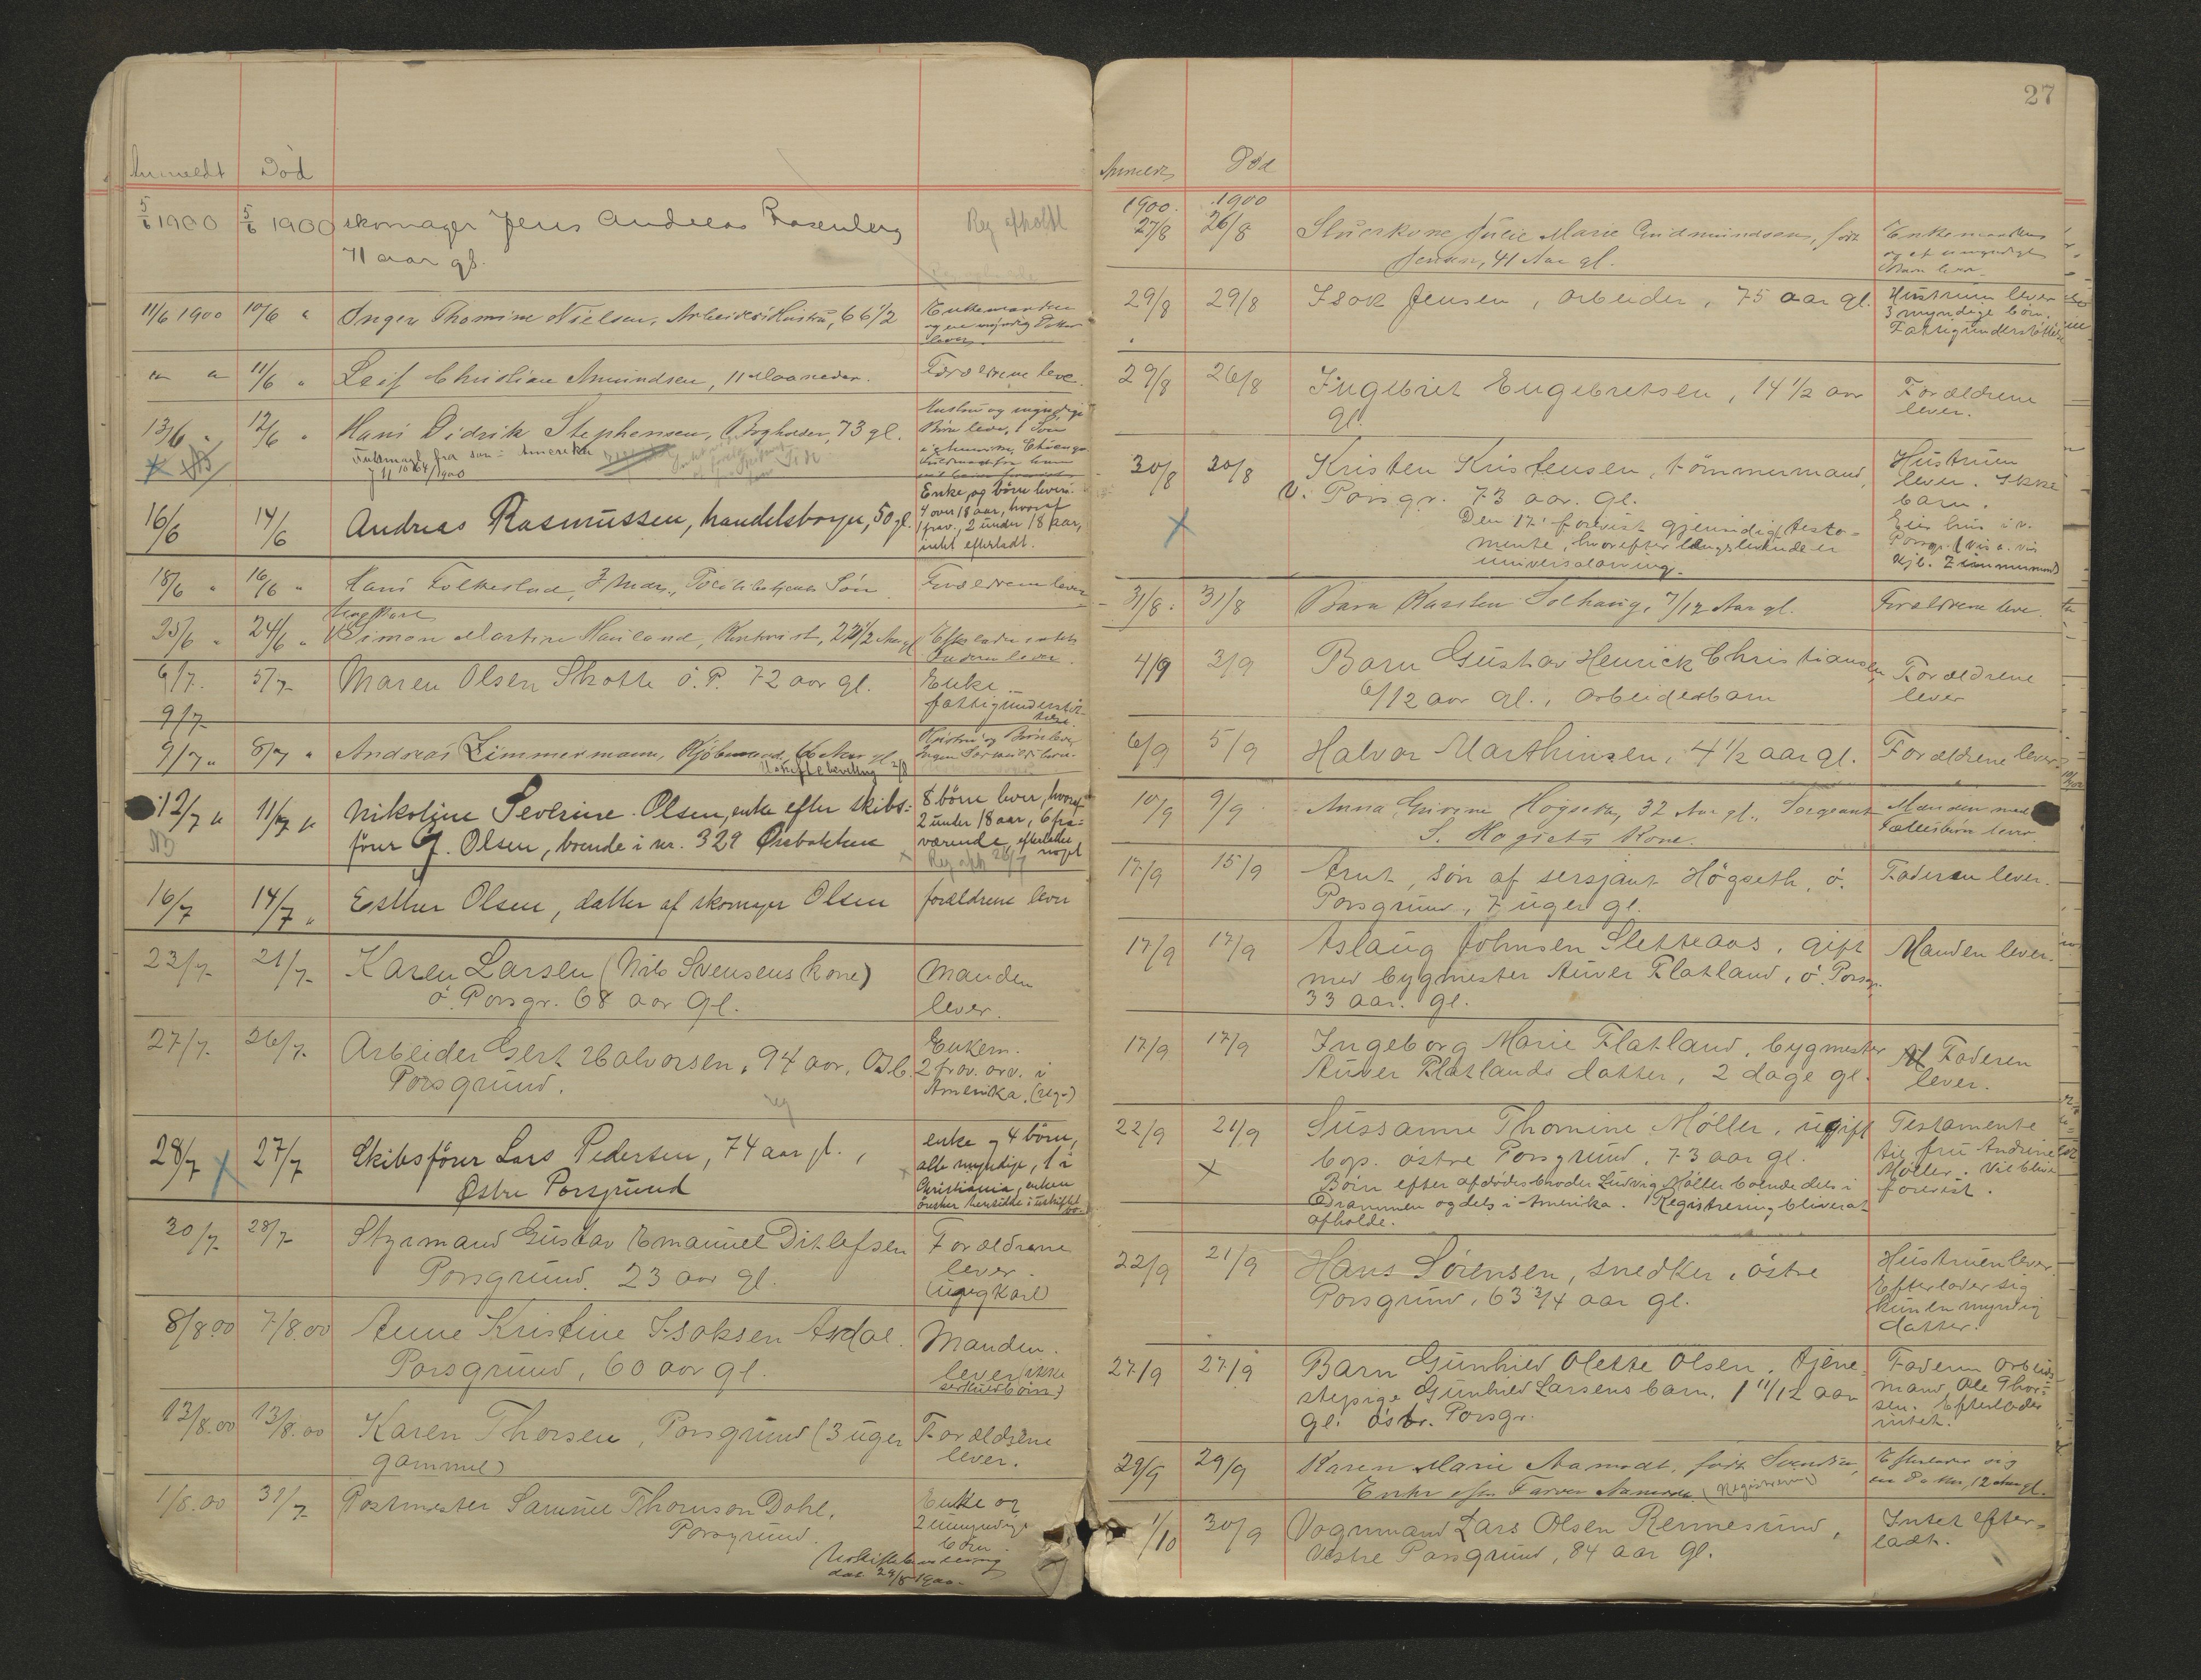 Anmeldt Död
5/6 1900 5/6 1900 skomager Jens Andreas Rosenberg Reg afholdt
71 aar gl.
11/6 1900 10/6 " Inger Thomine Nielsen, Arbeiders Hustru, 66 1/2 Enkemanden
og en myndig Datter
lever.
" " 11/6 " Leif Christian Amundsen, 11 Maaneder. Forældrene leve.
13/6 " 12/6 " Hans Didrik Stephensen, Bogholder, 73 gl. Hustru og myndige
Børn lever, 1 Søn
i Amerika, Chicago
Fuldmagt fra søn i Amerika
16/6 14/6 Andreas Rasmussen, handelsborger, 50 gl. Enke og börn lever.
4 over 18 aar, hvoraf
1 frav., 2 under 18 aar,
intet efterladt.
18/6 " 16/6 " Hans Folkestad, 3 Mdr., Søn Forældrene lever
Ungkarl
25/6 " 24/6 " Simon Martin Hauland, Kontorist, 22 1/2 Aar gl Efterlader intet
Faderen lever.
6/7. 5/7- Maren Olsen Skotte ö. P. 72 aar gl. Enke
fattigunderstöt-
telse.
9/7
9/7 " 8/7 " Andreas Zimmermann, Kjöbmand, Aar gl Hustru og Børn lever,
Ingen Særkuldsbørn.
Uskiftebevilling 2/8
12/7 " 11/7 " Nikoline Severine Olsen, enke efter skibs= 8 börn lever, hvoraf
2 under 18 aar, 6 fra=
NB förer J. Olsen, boende i nr. 329 Osebakken værende, efterlader
noget
Reg afh 26/7
16/7 14/7 " Esther Olsen, datter af skomager Olsen forældrene lever
23/7- 21/7- Karen Larsen (Nils Svensens kone) Manden
ö. Porsgr. 68 aar gl. lever.
27/7. 26/7. Arbeider Gert Halvorsen, 94 aar, Osb. Enkem.
2 frav. arv. i
Porsgrund. Amerika. (reg.)
reg
28/7 27/7 Skibsförer Lars Pedersen, 74 aar gl., enke og 4 börn,
alle myndige, 1 i
Østre Porsgrund Christiania, enken
önsker hensidde i uskiftet bo.
30/7- 28/7- Styrmand Gustav Emanuel Ditlefsen Forældrene
Porsgrund. 23 aar gl. lever.
(ungkarl)
8/8.00 7/8.00 Anne Kristine Isaksen Askdal. Manden.
Porsgrund, 60 aar gl. lever (ikke
særkuldbörn)
13/8.00 13/8.00 Karen Thorsen, Porsgrund (3 uger Forældrene
gammel) lever.
1/8.00 31/7- Postmester Samuel Thomson Dahl, Enke og
2 umyndige
Porsgrund. börn.
Uskiftebevilling
dat 29/8 1900.
27
Anmeldt Död
1900. 1900
27/8 26/8 Stuerkone Julie Marie Gudmundsen, født Enkemanden
og et umyndigt
Jensen, 41 Aar gl. Barn lever
29/8 29/8 Isak Jensen, arbeider, 75 aar gl. Hustruen lever
3 myndige börn.
Fattigunderstöttelse
29/8 26/8 Ingebret Engebretsen, 14 1/2 aar Forældrene
gl. lever.
30/8 30/8 Kristen Kristensen, tömmermand, Hustruen
lever. Ikke
v. Porsgr. 73 aar. gl. barn.
Den 17. forevist gjensidig testa- Eier hus i v.
mente, hvorefter længstlevende er Porsgr. (vis a. vis
universalarving. kjb. Zimmermand)
31/8. 31/8 Barn Karsten Solhaug, 7/12 Aar gl. Forældrene leve.
4/9 3/9 Barn Gustav Henrick Christiansen, Forældrene
6/12 aar gl., arbeiderbarn lever
6/9 5/9 Halvor Marthinsen, 4 1/2 aar gl. Forældrene lever
10/9 9/9 Anna Høgseth, 32 Aar gl., Sergeant Manden med
S. Høgseths Kone. Fællesbørn lever.
17/9 15/9 Arnt, sön af sersjant Högseth, ö. Faderen lever.
Porsgrund, 7 uger gl.
17/9 17/9 Aslaug Johnsen Sletteaas, gift Manden lever.
med bygmester Auver Flatland, ö. Porsgr.
33 aar. gl.
17/9 17/9 Ingeborg Marie Flatland, bygmester Faderen
Auver Flatlands datter, 2 dage gl. lever.
22/9 21/9 Sussanne Thomine Möller, ugift Testamente
bop. östre Porsgrund, 73 aar gl. til fru Andrine
Möller. Vil blive
Börn efter afdödes broder Ludvig Möller boende dels i forevist.
Drammen og dels i Amerika. Registrering bliver at
afholde.
22/9 21/9 Hans Sörensen, snedker, östre Hustruen lever.
Efterlader sig
Porsgrund, 63 3/4 aar gl. kun en myndig
datter.
27/9 27/9 Barn Gunhild Olette Olsen, tjene- Faderen arbeids-
stepige Gunhild Larsens barn, 1 11/12 aar mand Ole Thor-
sen. Efterlader
gl. östr. Porsgr. intet.
29/9 29/9 Karen Marie Aamodt, født Svendsen, Efterlader sig
en Datter, 12 Aar gl.
Enke efter Farver Aamodt. (Registrering)
1/10 30/9 Vognmand Lars Olsen Rennesund, Intet efter-
Vestre Porsgrund, 84 aar gl. ladt.